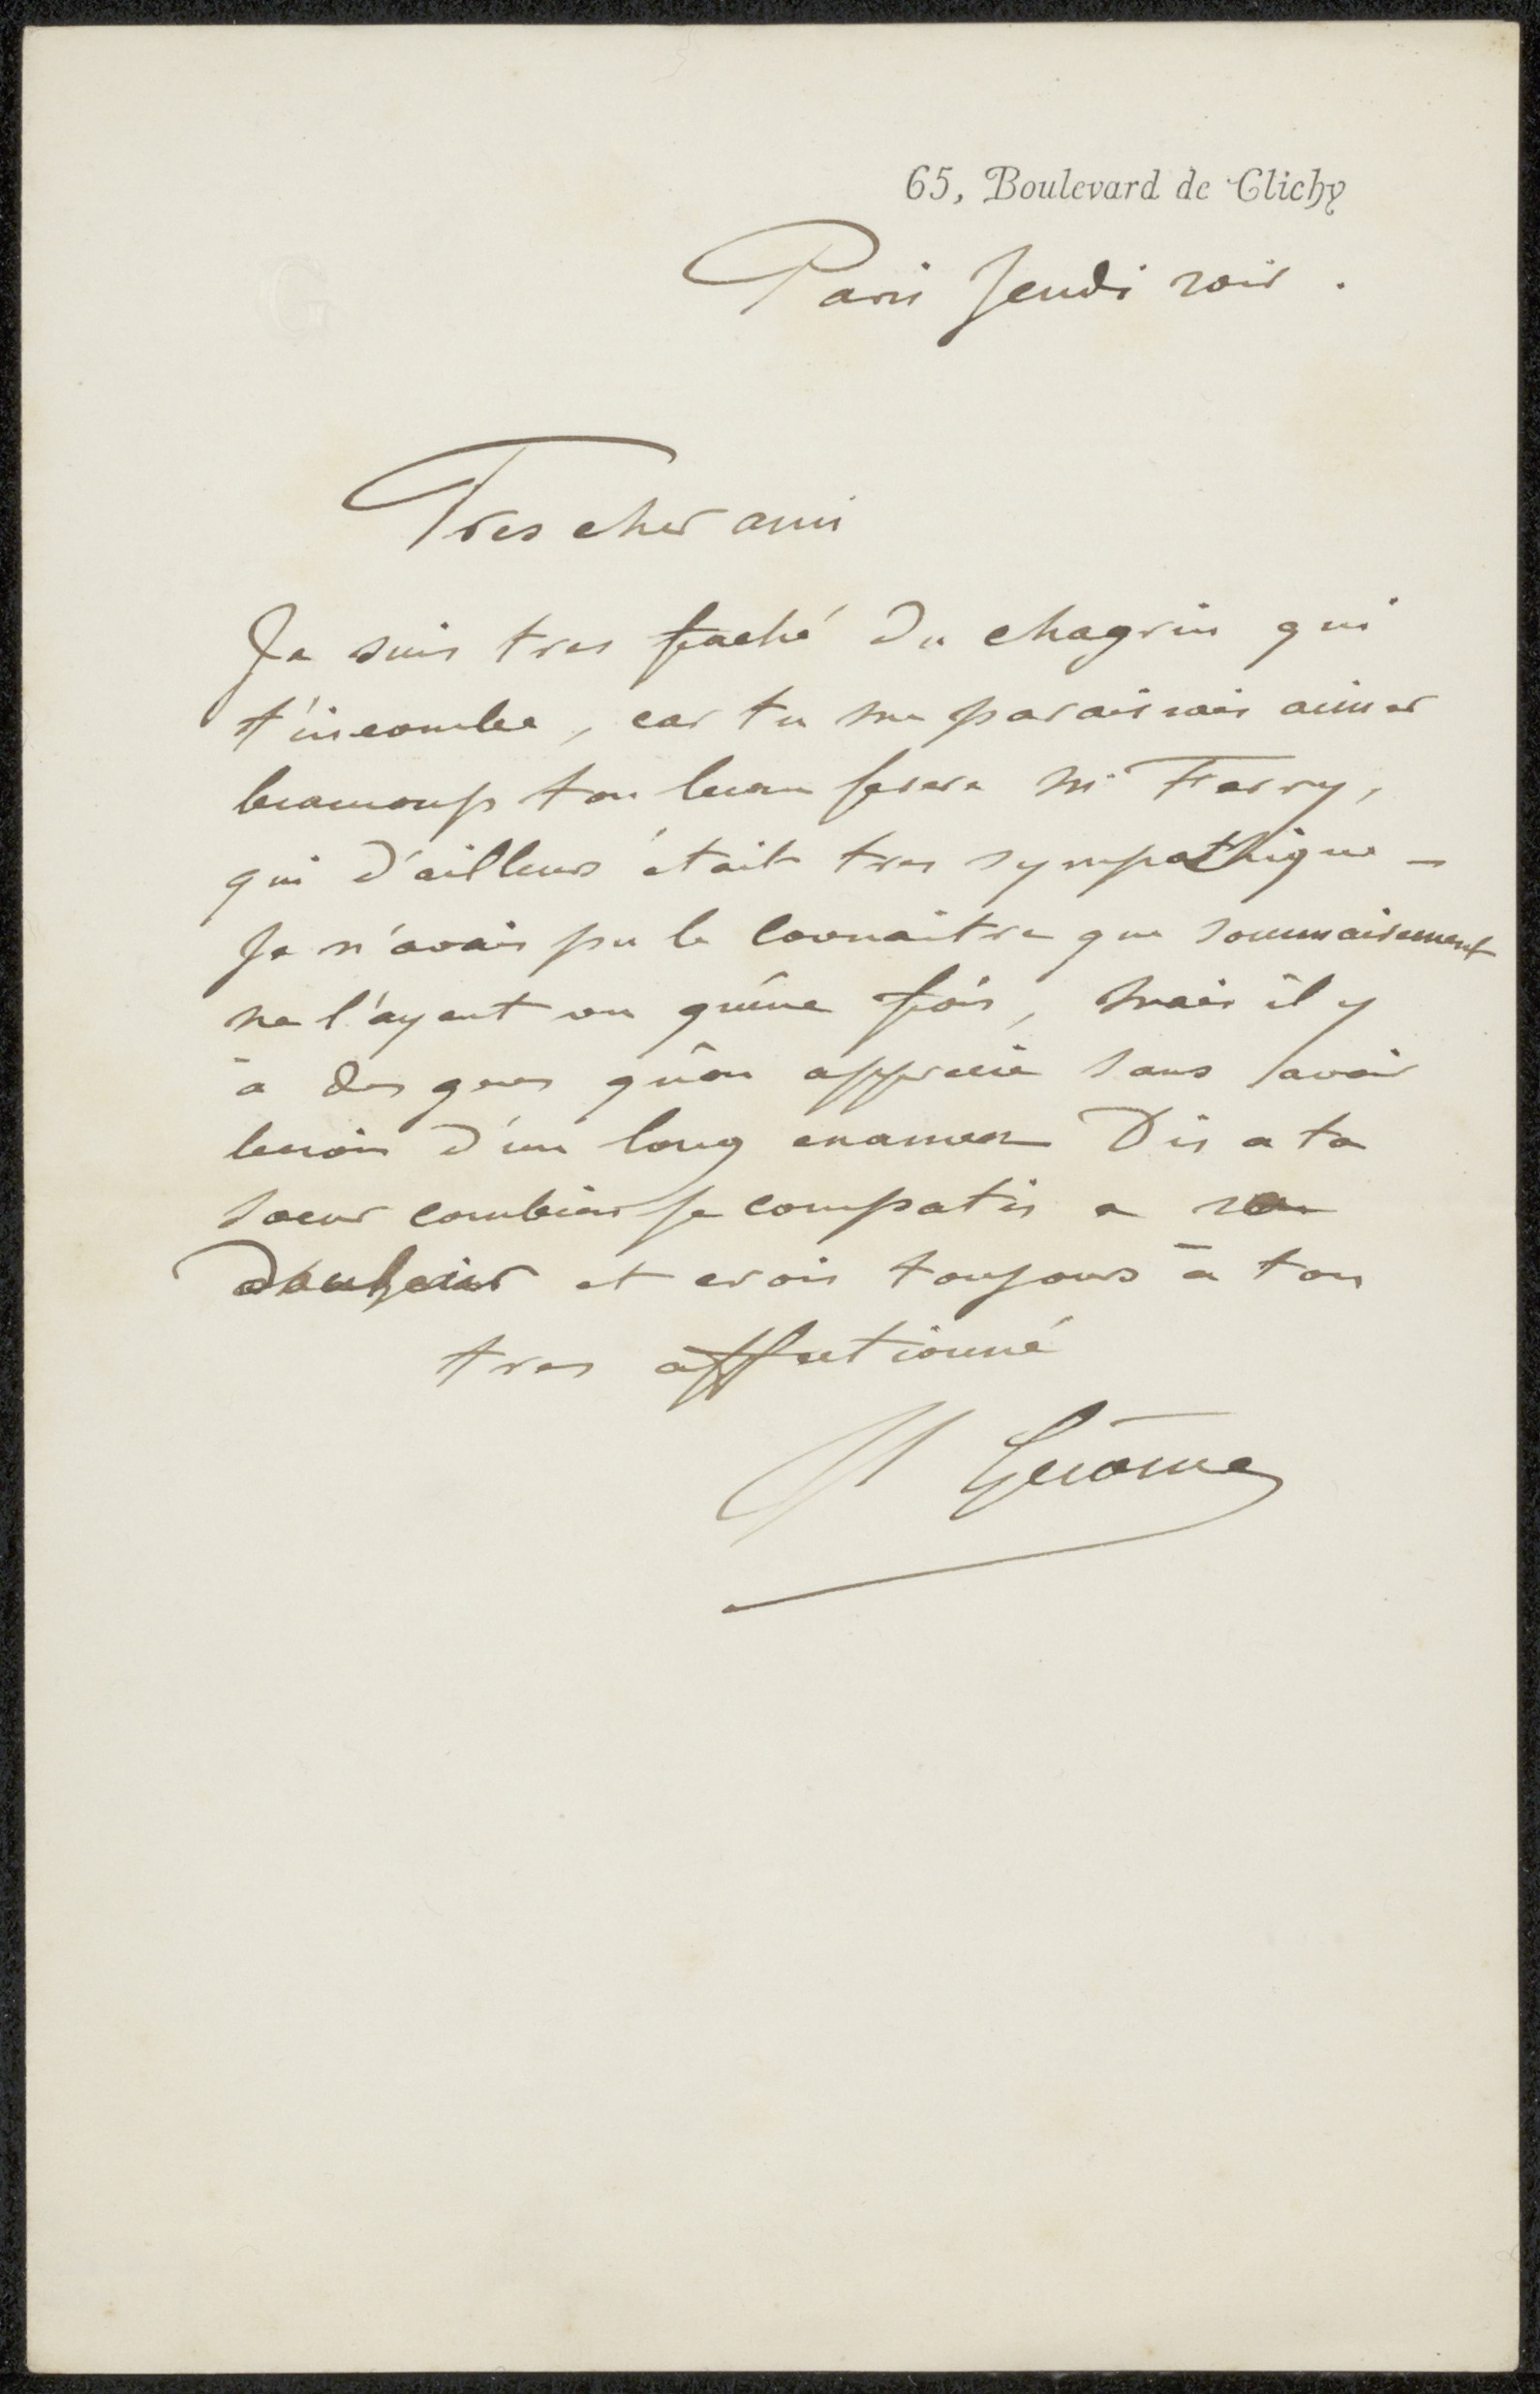 G
65, Boulevard de Clichy
Paris Jeudi soir.
Tres cher ami
Je suis tres faché du chagrin qui
t'incombe, car tu me paraissais aimer
beaucoup ton beau frere Mr Ferry,
qui d'ailleurs était tres sympathique –
Je n'avais pu le connaitre que sommairement
ne l'ayant vu qu'une fois, mais il y
a des gens qu'on apprecie sans avoir
besoin d'un long examen Dis a ta
soeur combien je compatis a sa
douleur et crois toujours à ton
tres affectionné
Gérôme